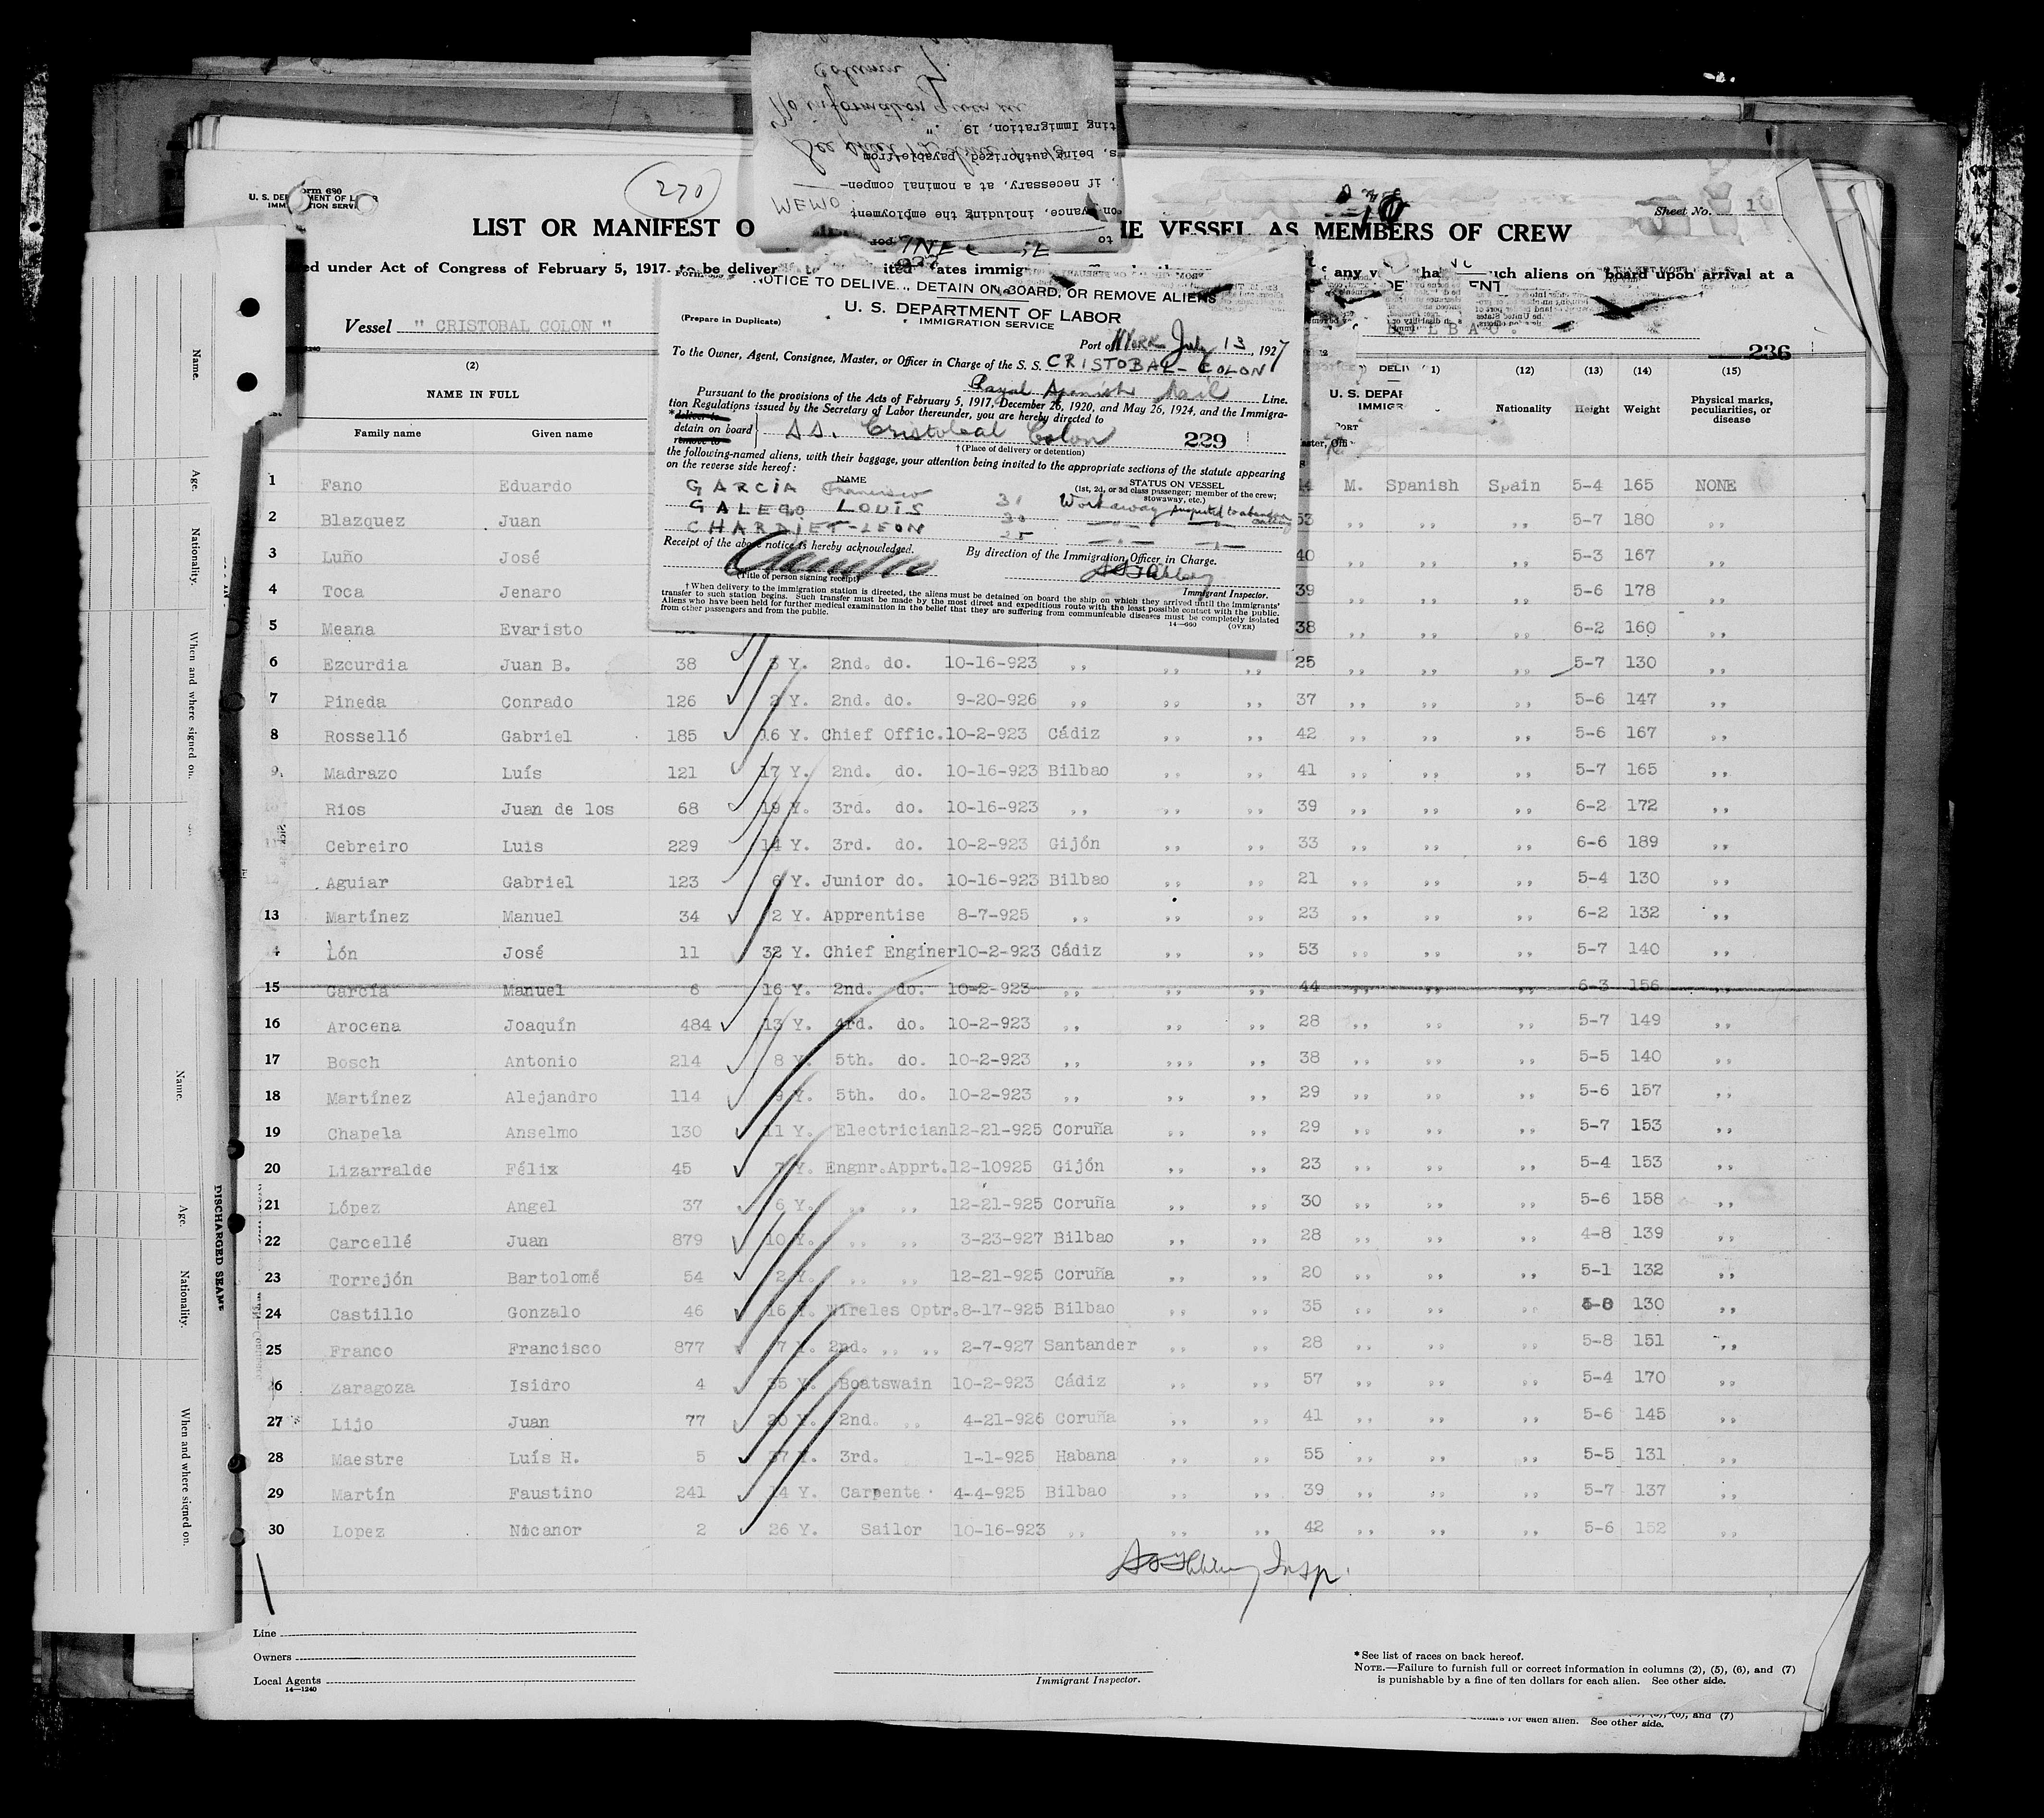 Column 7.
No information given in
ting Immigration, 19 .".
See
s, being authorized, payable from
, if necessary, at a nominal compen-
MEMO
on
veyance, including the employment
to
Form 680
U. S. DEPARTMENT OF LABOR
IMMIGRATION SERVICE
270
Sheet No. 10
LIST OR MANIFEST O HE VESSEL AS MEMBERS OF CREW
ed under Act of Congress of February 5, 1917, to be deliver to ited tates immig any such aliens on board upon arrival at a
Vessel " CRISTOBAL COLON "
BILBAO.
236
NOTICE TO DELIVER, DETAIN ON BOARD, OR REMOVE ALIENS
U. S. DEPARTMENT OF LABOR
IMMIGRATION SERVICE
(Prepare in Duplicate)
Port of N York July 13, 1927
To the Owner, Agent, Consignee, Master, or Officer in Charge of the S. S. CRISTOBAL-COLON
Royal Spanish Mail Line.
Pursuant to the provisions of the Acts of February 5, 1917, December 26, 1920, and May 26, 1924, and the Immigra-
tion Regulations issued by the Secretary of Labor thereunder, you are hereby directed to
*deliver to
detain on board
remove to
SS. Cristobal Colon 229
†(Place of delivery or detention)
the following-named aliens, with their baggage, your attention being invited to the appropriate sections of the statute appearing
on the reverse side hereof:
NAME STATUS ON VESSEL
(1st, 2d, or 3d class passenger; member of the crew;
stowaway, etc.)
GARCIA Francisco 31 Workaway
GALEGO LOUIS 30 —"— —"—
CHARDIET-LEON 25 —"— —"—
Receipt of the above notice is hereby acknowledged. By direction of the Immigration Officer in Charge.
(Title of person signing receipt)
Immigrant Inspector.
†When delivery to the immigration station is directed, the aliens must be detained on board the ship on which they arrived until the immigrants'
transfer to such station begins. Such transfer must be made by the most direct and expeditious route with the least possible contact with the public.
Aliens who have been held for further medical examination in the belief that they are suffering from communicable diseases must be completely isolated
from other passengers and from the public.
14—660 (OVER)
(2) (12) (13) (14) (15)
NAME IN FULL Nationality Height Weight Physical marks, peculiarities, or disease
Family name Given name
1 Fano Eduardo M. Spanish Spain 5-4 165 NONE
2 Blazquez Juan 53 ,, ,, ,, 5-7 180 ,,
3 Luño José 40 ,, ,, ,, 5-3 167 ,,
4 Toca Jenaro 39 ,, ,, ,, 5-6 178 ,,
5 Meana Evaristo 38 ,, ,, ,, 6-2 160 ,,
6 Ezcurdia Juan B. 38 3 Y. 2nd. do. 10-16-923 ,, ,, ,, 25 ,, ,, ,, 5-7 130 ,,
7 Pineda Conrado 126 2 Y. 2nd. do. 9-20-926 ,, ,, ,, 37 ,, ,, ,, 5-6 147 ,,
8 Rosselló Gabriel 185 16 Y. Chief Offic. 10-2-923 Cádiz ,, ,, 42 ,, ,, ,, 5-6 167 ,,
9 Madrazo Luís 121 17 Y. 2nd. do. 10-16-923 Bilbao ,, ,, 41 ,, ,, ,, 5-7 165 ,,
Rios Juan de los 68 19 Y. 3rd. do. 10-16-923 ,, ,, ,, 39 ,, ,, ,, 6-2 172 ,,
11 Cebreiro Luis 229 14 Y. 3rd. do. 10-2-923 Gijón ,, ,, 33 ,, ,, ,, 6-6 189 ,,
Aguiar Gabriel 123 6 Y. Junior do. 10-16-923 Bilbao ,, ,, 21 ,, ,, ,, 5-4 130 ,,
13 Martínez Manuel 34 2 Y. Apprentise 8-7-925 ,, ,, ,, 23 ,, ,, ,, 6-2 132 ,,
4 Lón José 11 32 Y. Chief Enginer 10-2-923 Cádiz ,, ,, 53 ,, ,, ,, 5-7 140 ,,
15 García Manuel 6 16 Y. 2nd. do. 10-2-923 ,, ,, ,, 44 ,, ,, ,, 6-3 156 ,,
16 Arocena Joaquín 484 13 Y. 4rd. do. 10-2-923 ,, ,, ,, 28 ,, ,, ,, 5-7 149 ,,
17 Bosch Antonio 214 8 Y. 5th. do. 10-2-923 ,, ,,, ,, 38 ,, ,, ,, 5-5 140 ,,
18 Martínez Alejandro 114 9 Y. 5th. do. 10-2-923 ,, ,, ,, 29 ,, ,, ,, 5-6 157 ,,
19 Chapela Anselmo 130 11 Y. Electrician 12-21-925 Coruña ,, ,, 29 ,, ,, ,, 5-7 153 ,,
20 Lizarralde Félix 45 7 Y. Engnr.Apprt. 12-10925 Gijón ,, ,, 23 ,, ,, ,, 5-4 153 ,,
21 López Angel 37 6 Y. ,, ,, 12-21-925 Coruña ,, ,, 30 ,, ,, ,, 5-6 158 ,,
22 Carcellé Juan 879 10 Y. ,, ,, 3-23-927 Bilbao ,, ,, 28 ,, ,, ,, 4-8 139 ,,
23 Torrejón Bartolomé 54 2 Y. ,, ,, 12-21-925 Coruña ,, ,, 20 ,, ,, ,, 5-1 132 ,,
24 Castillo Gonzalo 46 16 Y. Wireles Optr. 8-17-925 Bilbao ,, ,, 35 ,, ,, ,, 130 ,,
25 Franco Francisco 877 7 Y. 2nd. ,, ,, 2-7-927 Santander ,, ,, 28 ,, ,, ,, 5-8 151 ,,
26 Zaragoza Isidro 4 35 Y. Boatswain 10-2-923 Cádiz ,, ,, 57 ,, ,, ,, 5-4 170 ,,
27 Lijo Juan 77 20 Y. 2nd. ,, 4-21-926 Coruña ,, ,, 41 ,, ,, ,, 5-6 145 ,,
28 Maestre Luís H. 5 37 Y. 3rd. 1-1-925 Habana ,, ,, 55 ,, ,, ,, 5-5 131 ,,
29 Martín Faustino 241 14 Y. Carpente 4-4-925 Bilbao ,, ,, 39 ,, ,, ,, 5-7 137 ,,
30 Lopez Nicanor 2 26 Y. Sailor 10-16-923 ,, ,, ,, 42 ,, ,, ,, 5-6 152 ,,
Insp.
Line
Owners
Local Agents
14—1240
Immigrant Inspector.
*See list of races on back hereof.
NOTE.—Failure to furnish full or correct information in columns (2), (5), (6), and (7)
is punishable by a fine of ten dollars for each alien. See other side.
(6), and (7)
dollars for each alien. See other side.
Name.
Age.
Nationality.
When and where signed on.
Name.
Age.
Nationality.
When and where signed on.
DISCHARGED SEAME